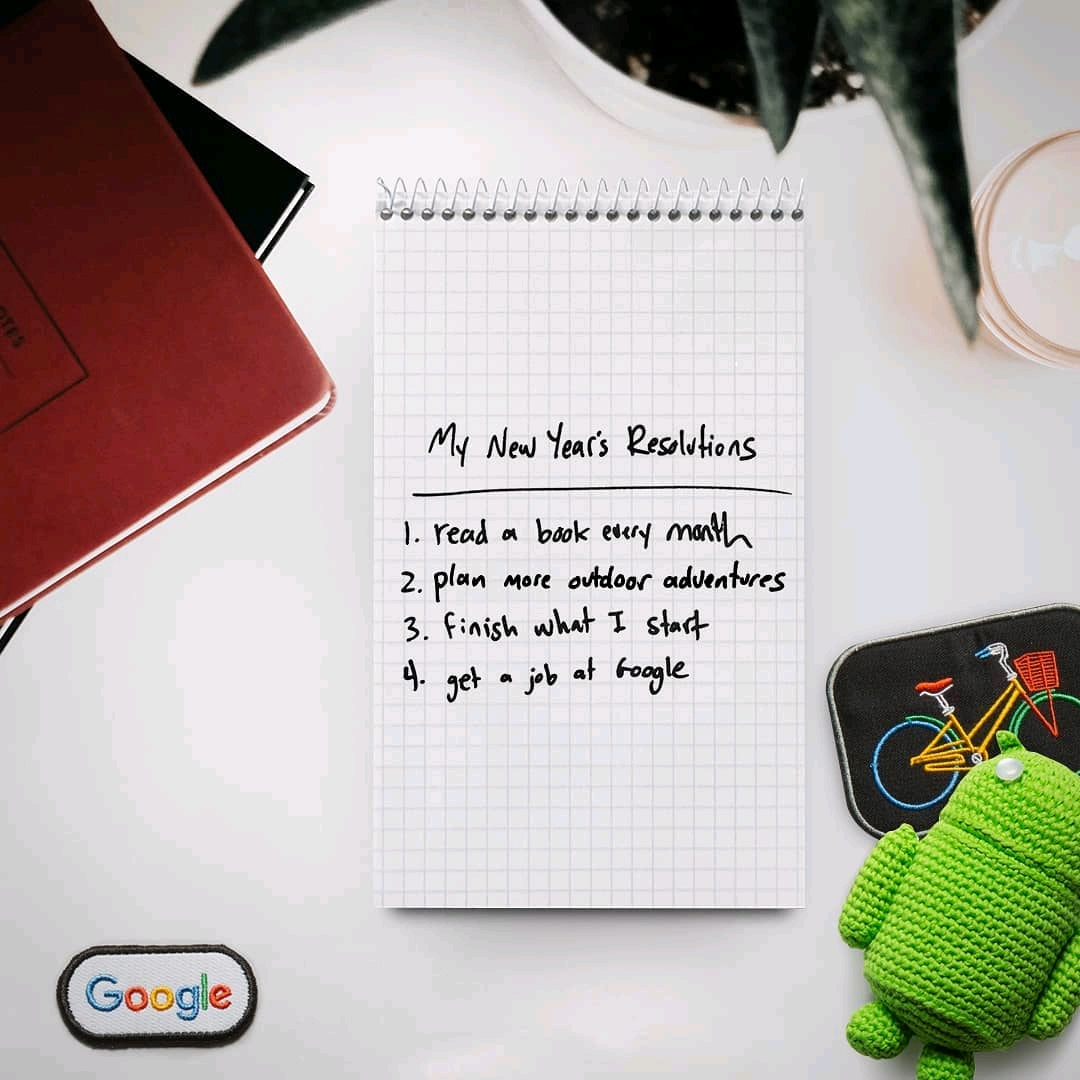 OTES
My New Year's Resolutions
1. read a book every month
2. plan more outdoor adventures
3. finish what I start
4. get a job at Google
Google